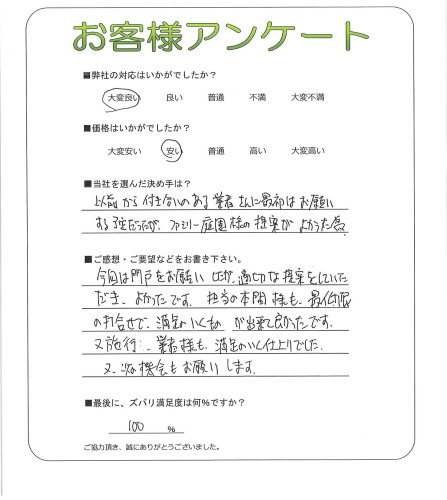 お客様アンケート
■弊社の対応はいかがでしたか?
大変良い 良い 普通 不満 大変不満
■価格はいかがでしたか?
大変安い 安い 普通 高い 大変高い
■当社を選んだ決め手は?
以前から付き合いのある業者さんに最初はお願い
する予定だったが、ファミリー庭園様の提案がよかった為
■ご感想・ご要望などをお書き下さい。
今回は門戸をお願い 適切な提案をしていた
だき、よかったです。担当の本間様も、最低限
の打合せで、満足のいくもの が出来て良かったです。
又施行 業者様も、満足のいく仕上りでした。
又、次の機会もお願いします。
■最後に、ズバリ満足度は何%ですか?
100 %
ご協力頂き、誠にありがとうございました。